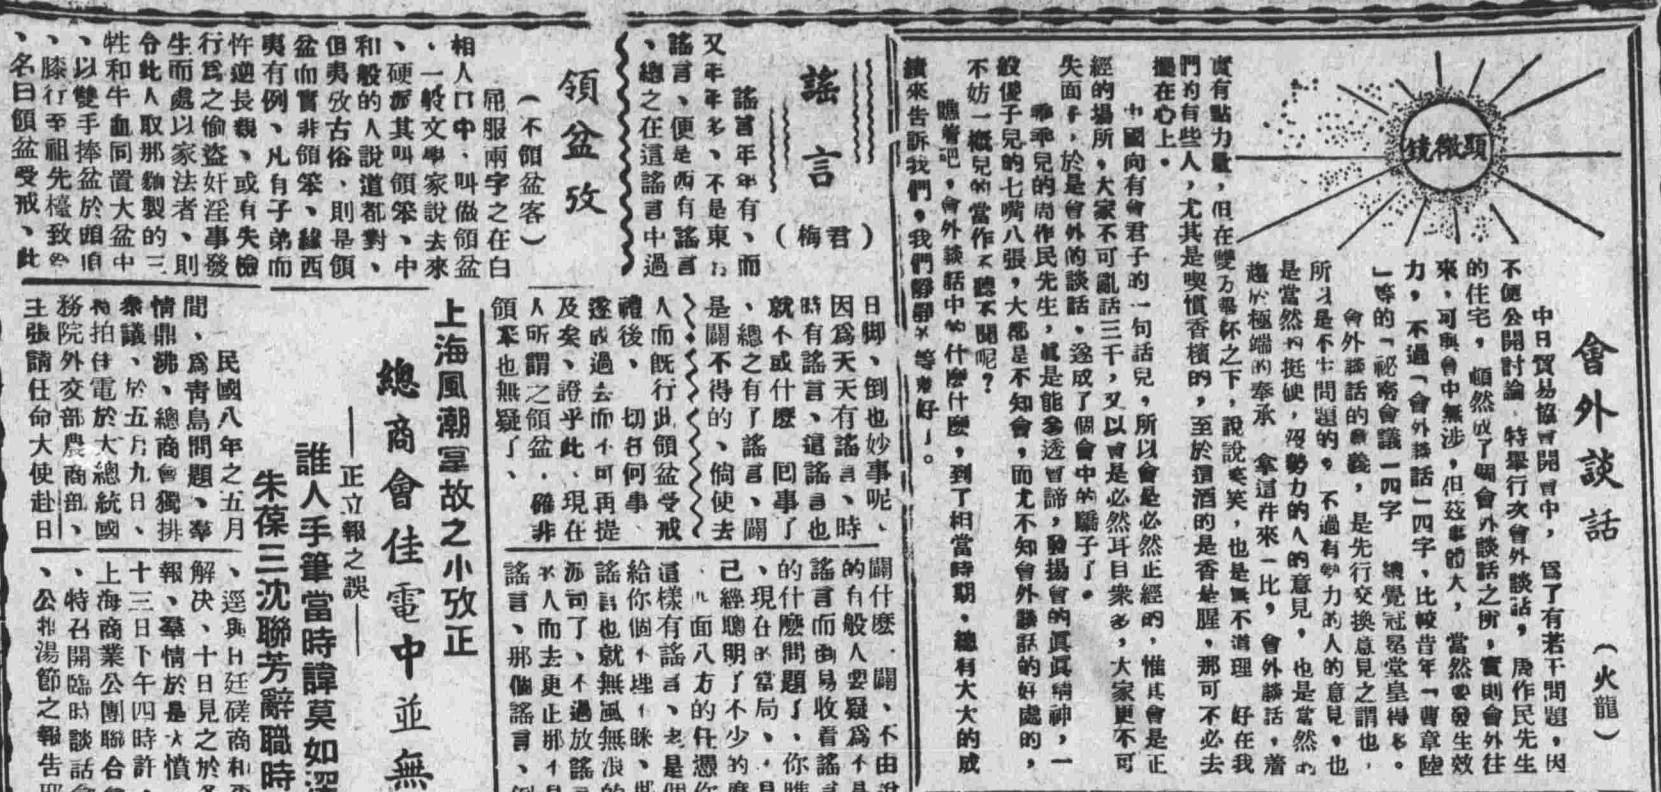 顯微鏡
會外談話
（火龍）
中日貿易協會開會中，爲了有若干問題，因
不便公開討論 特舉行次會外談話，周作民先生
的住宅，頓然成了個會外談話之所，實則會外往
來，可與會中無涉，但茲事體大，當然要發生效
力，不過「會外談話」四字，比較昔年「曹章陸
」等的「祕密會議」四字 總覺冠冕堂皇得多。
會外談話的意義，是先行交換意見之謂也，
所以是不生問題的。不過有勢力的人的意見，也
是當然的挺硬，沒勢力的人的意見，也是當然的
趨於極端的奉承 拿這件來一比，會外談話，着
實有點力量，但在雙方舉杯之下，說說笑笑，也是無不道理 好在我
們的有些人，尤其是喫慣香檳的，至於這酒的是香是腥，那可不必去
擺在心上。
中國向有會君子的一句話兒，所以會是必然正經的，惟其會是正
經的場所，大家不可亂話三千，又以會是必然耳目衆多，大家更不可
失面子，於是會外的談話，遂成了個會中的驕子了。
乖乖兒的周作民先生，眞是能參透會諦，發揚會的眞眞精神，一
般傻子兒的七嘴八張，大都是不知會，而尤不知會外談話的好處的，
不妨一概兒的當作不聽不聞呢？
瞧着吧，會外談話中的什麽什麽，到了相當時期，總有大大的成
績來告訴我們，我們靜靜的等着好了。
謠言
（梅君）
謠言年年有、而
又年年多、不是東有
謠言、便是西有謠言
、總之在這謠言中過
日脚、倒也妙事呢、
因爲天天有謠言、時
時有謠言、這謠言也
就不成什麽一回事了
、總之有了謠言、闢
是闢不得的、倘使去
闢什麽、闢、不由說
的有般人要疑爲不是
謠言而倒易收看謠言
的什麽問題了、你瞧
、現在的當局、
已經聰明了不少的
、四面八方的任憑你
這樣有謠言、老是個
給你個不理不睬、
謠言也就無風無浪的
謠言、那個謠言、
領盆攷
（不領盆客）
屈服兩字之在白
相人口中、叫做領盆
、一般文學家說去來
、硬派其叫領笨、中
和般的人說道都對、
但夷攷古俗、則是領
盆而實非領笨、緣西
夷有例、凡有子弟而
忤逆長親、或有失檢
行爲之偷盜奸淫事發
生而處以家法者、則
令此人取那麵製的三
牲和牛血同置大盆中
、以雙手捧盆於頭頂
、膝行至祖先檯致祭
、名曰領盆受戒、此
人而旣行此領盆受戒
禮後、 切各何事、
遂成過去而不可再提
及矣、證乎此、現在
人所謂之領盆、確非
領笨也無疑了、
上海風潮掌故之小攷正
總商會佳電中並無
——正立報之誤——
誰人手筆當時諱莫如深
朱葆三沈聯芳辭職時
民國八年之五月
間、爲靑島問題、羣
情鼎沸、總商會獨排
衆議、於五月九日、
特拍佳電於大總統國
務院外交部農商部、
主張請任命大使赴日
、逕與日廷磋商和平
解决、十日見之於各
報、羣情於是大憤、
十三日下午四時許、
上海商業公團聯合會
、特召開臨時談話會
、公推湯節之報告